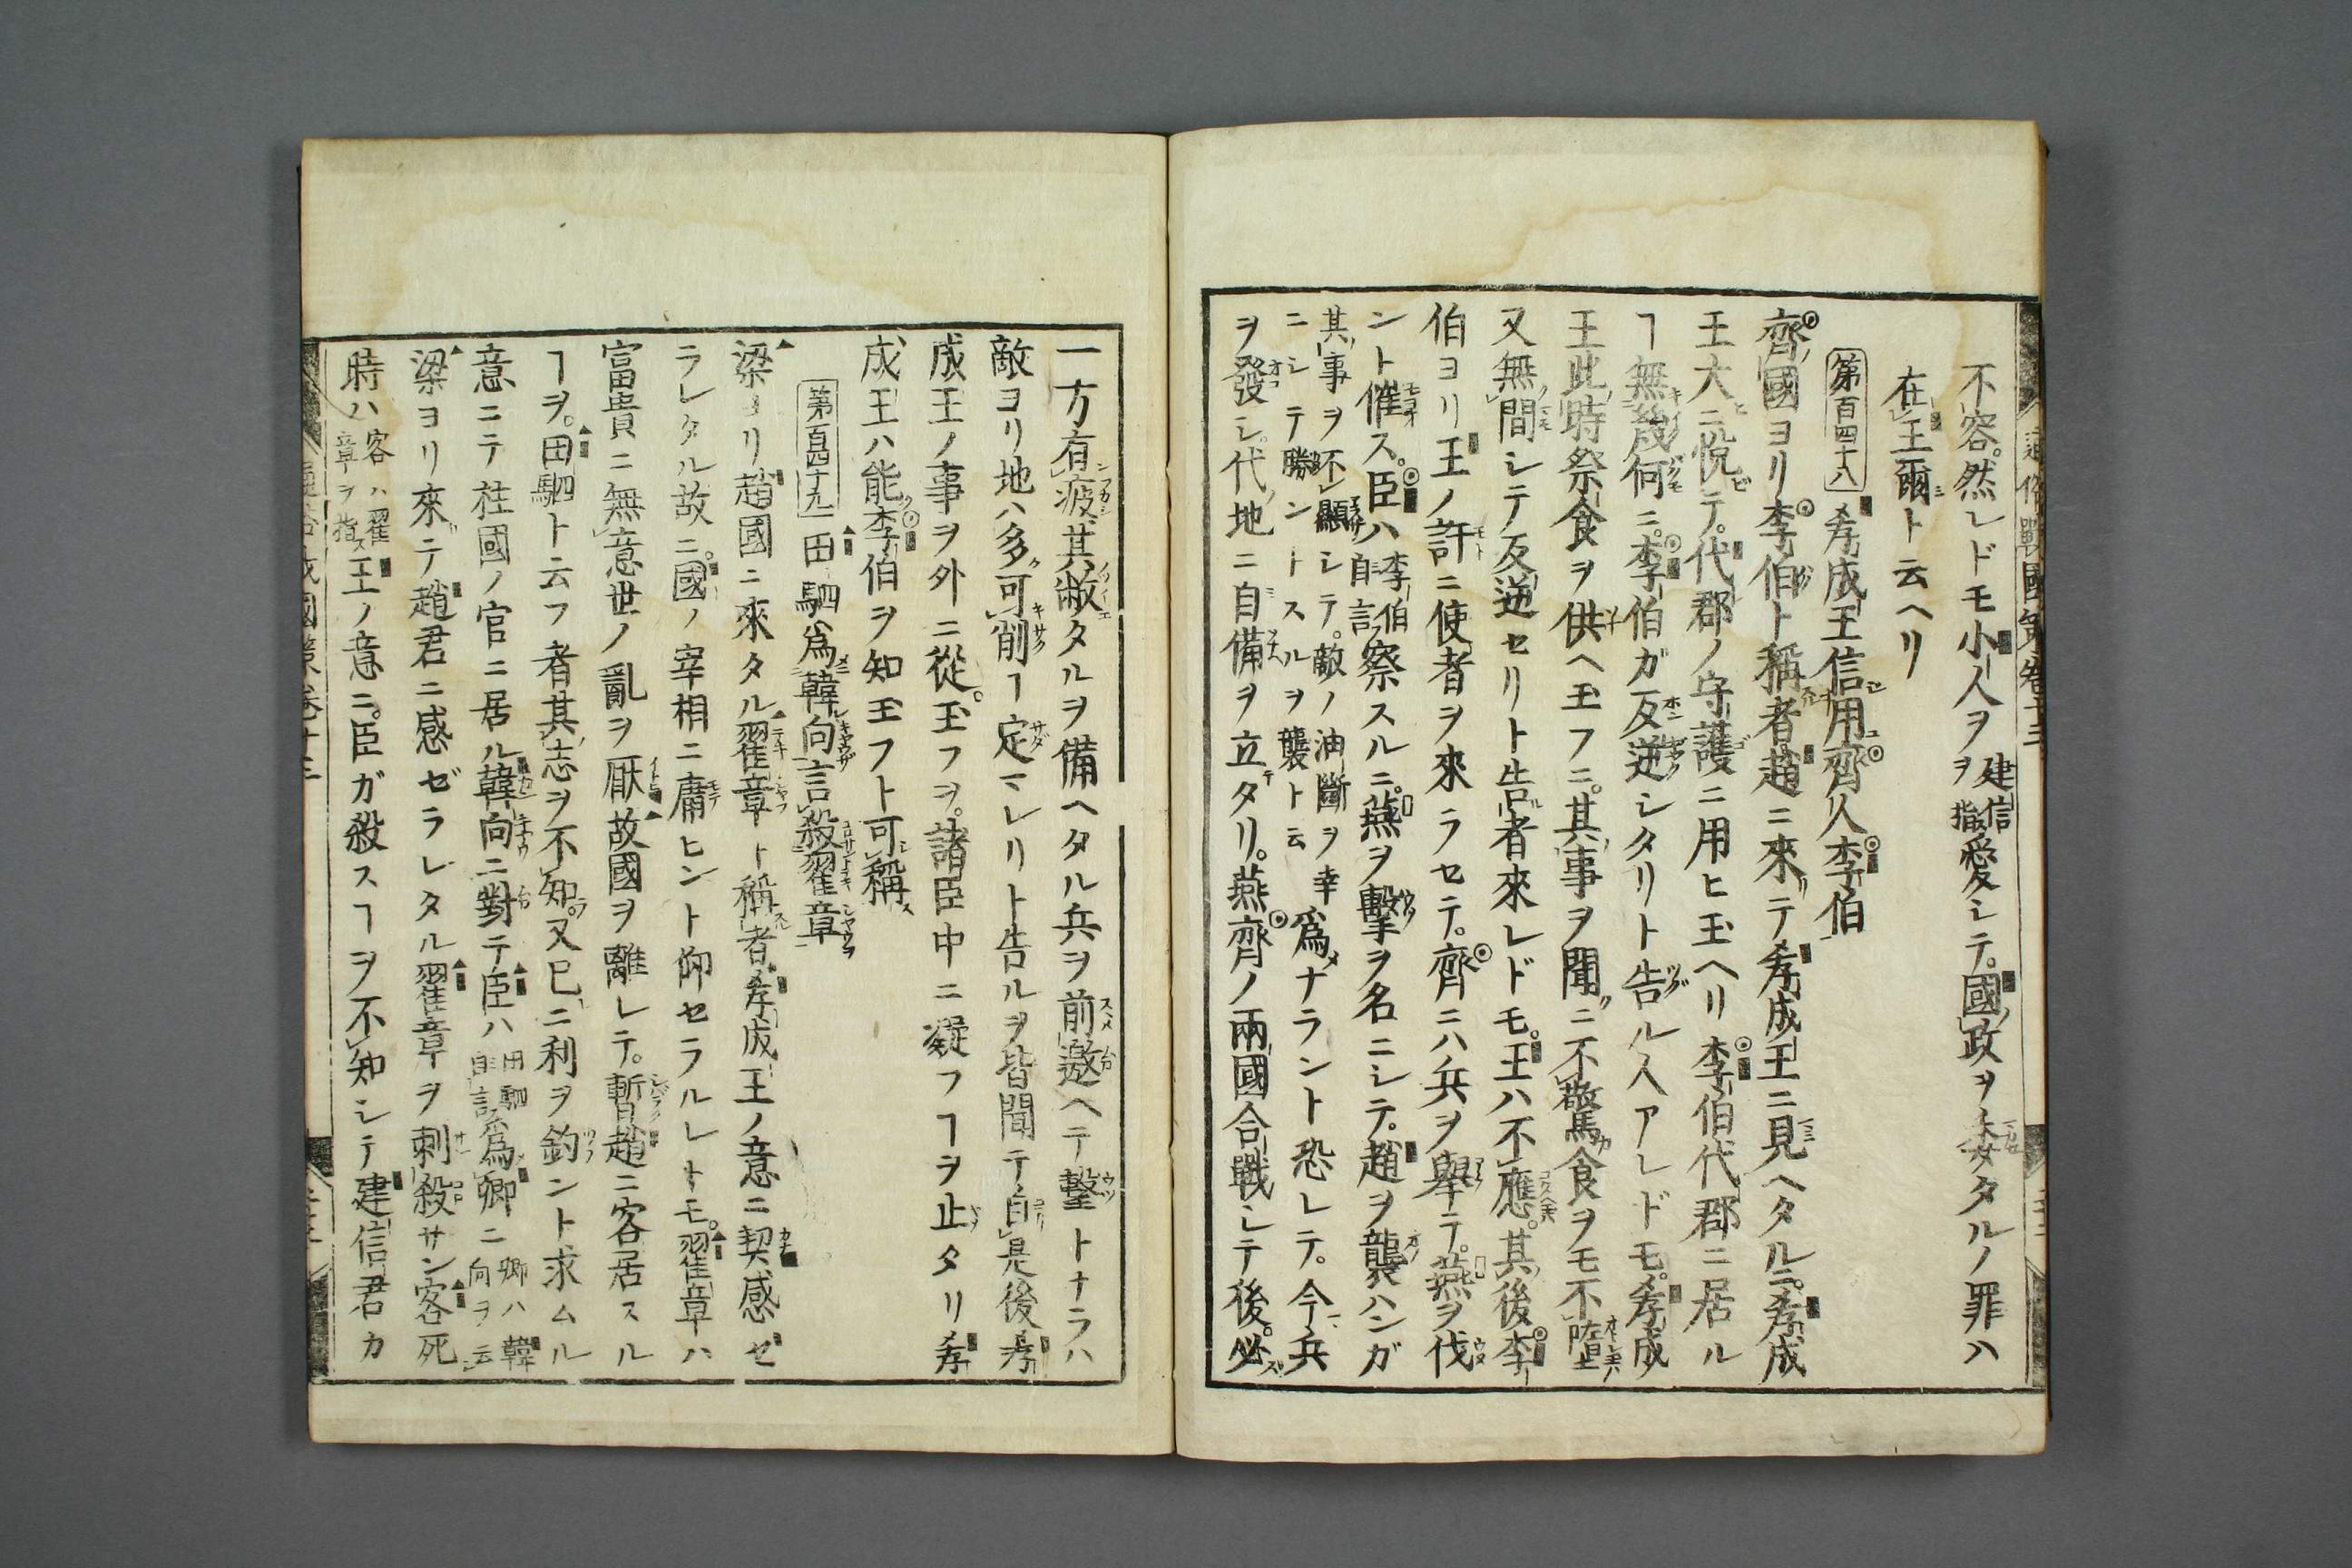 不容。然レドモ小人ヲ建信ヲ指愛シテ。國政ヲ委タルノ罪ハ
在王爾ト云ヘリ
第百四十八 孝成王信用齊人李伯
齊國ヨリ李伯ト稱者趙ニ來テ孝成王ニ見ヘタルニ。孝成
王大ニ悅テ。代郡ノ守護ニ用ヒ玉ヘリ李伯代郡ニ居ル
ヿ無幾何ニ。李伯ガ反逆シタリト告ル人アレドモ。孝成
王此時祭食ヲ供ヘ玉フニ。其事ヲ聞ニ不驚食ヲモ不墮
又無間シテ反逆セリト告者來レドモ。王ハ不應。其後李
伯ヨリ王ノ許ニ使者ヲ來ラセテ。齊ニハ兵ヲ舉テ。燕ヲ伐
ント催ス。臣ハ李伯自言察スルニ。燕ヲ擊ヲ名ニシテ。趙ヲ襲ハンガ
其事ヲ不顯シテ。敵ノ油斷ヲ幸ニシテ勝ントスルヲ襲ト云爲ナラント恐レテ。今兵
ヲ發シ。代地ニ自備ヲ立タリ。燕齊ノ兩國合戰シテ後。必
通俗戰國策卷十三
一方有疲其敝タルヲ備ヘタル兵ヲ前邀ヘテ擊トナラハ
敵ヨリ地ハ多可削ヿ定マレリト告ルヲ皆聞テ自是後孝
成王ノ事ヲ外ニ從玉フヲ。諸臣中ニ凝フヿヲ止タリ孝
成王ハ能李伯ヲ知玉フト可稱
第百四十九 田駟爲韓向言殺翟章
梁ヨリ趙國ニ來タル翟章ト稱者孝成王ノ意ニ契感ゼ
ラレタル故ニ。國ノ宰相ニ庸ヒント仰セラルレトモ。翟章ハ
富貴ニ無意世ノ亂ヲ厭故國ヲ離レテ。暫趙ニ客居スル
ヿヲ。田駟ト云フ者其志ヲ不知。又已ニ利ヲ釣ント求ムル
意ニテ柱國ノ官ニ居ル韓向ニ對テ臣ハ田駟自言爲卿ニ卿ハ韓向ヲ云
梁ヨリ來テ趙君ニ感ゼラレタル翟章ヲ刺殺サン客死
時ハ客ハ翟章ヲ指ス王ノ意ニ。臣ガ殺スヿヲ不知シテ建信君カ